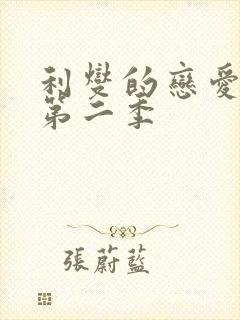 利燮的戀愛
第二季
張蔚藍